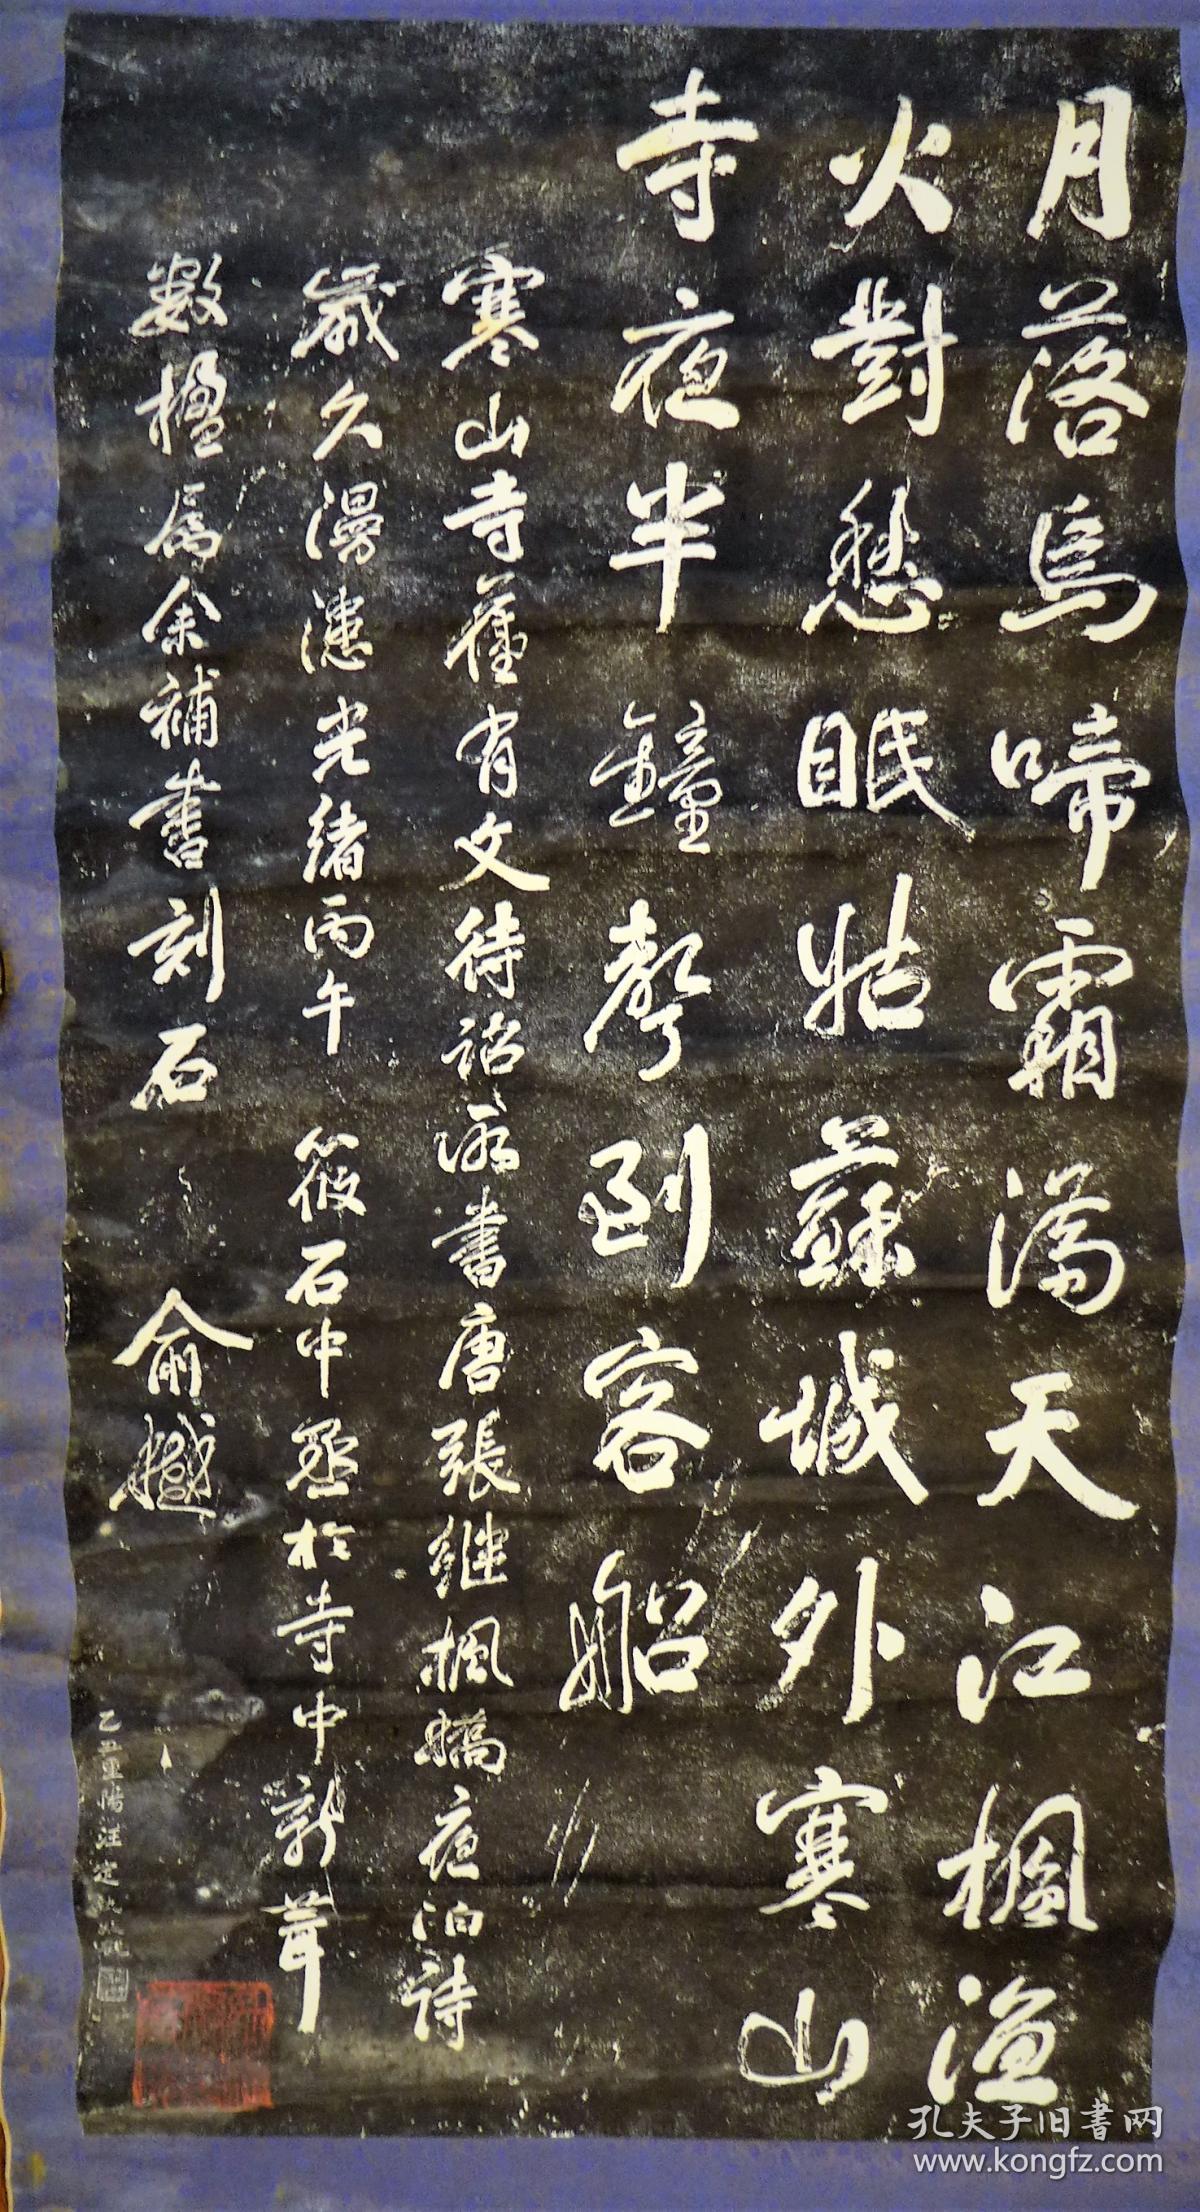 月落烏啼霜滿天江楓漁
火對愁眠姑蘇城外寒山
寺夜半鐘聲到客船
寒山寺舊有文待詔所書唐張繼楓橋夜泊詩
歲久漫漶光緒丙午 筱石中丞於寺中新葺
數楹屬余補書刻石 俞樾
乙丑重陽汪定
孔夫子旧書网
www.kongfz.com